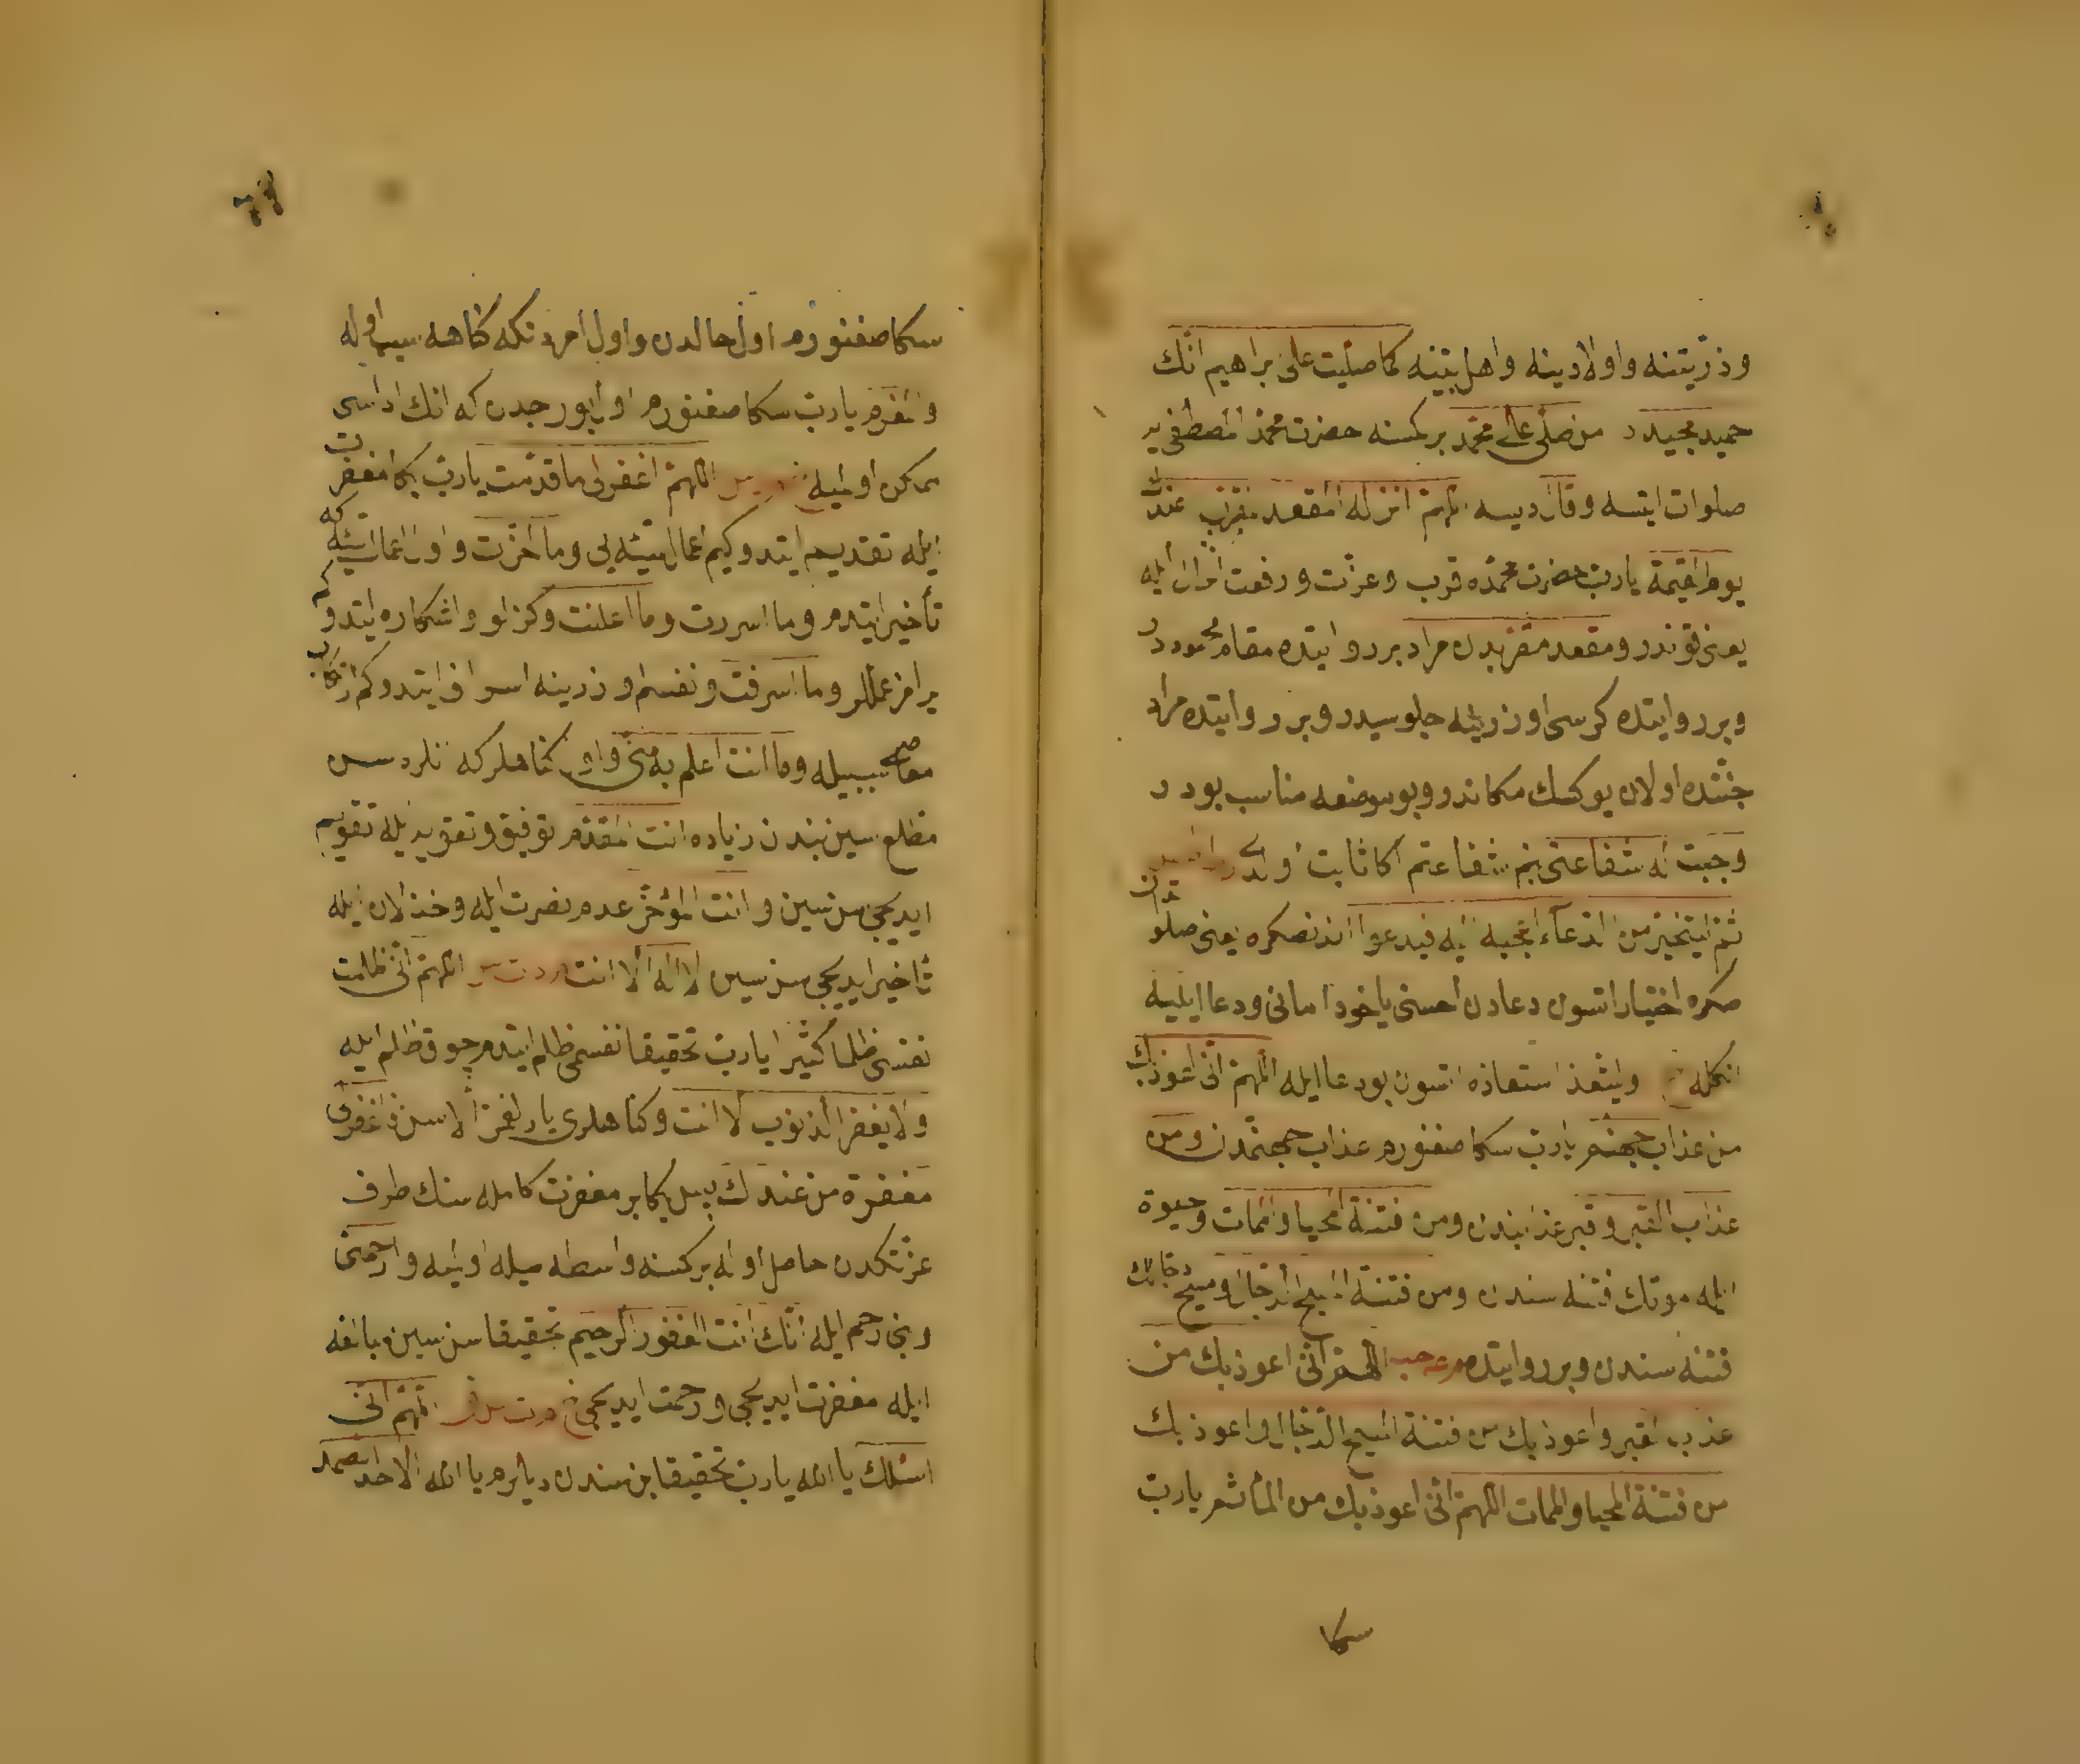 وذرّيتنه واولادينه واهل بيتنه كما صلّيت على براهيم انّك
حميد مجيددر من صلّى على محمّد بر كمسنه حضرت محمّد المصطفى يه
صلوات ايتسه وقال ديسه اللهمّ انزله المقعد المقرّب عندك
يوم القيمة يا ربّ حضرت محمّده قرب وعزّت ورفعت انزال ايله
يعنى قوندر ومقعد مقرّبدن مراد بر روايتده مقام محموددر
وبر روايتده كرسى اوزرينه جلوسيدر وبر روايتده مراد
جنّتده اولان يوكسك مكاندر وبو موضعه مناسب بودر
وجبت له شفاعتى بنم شفاعتم اكا ثابت اولدى
ثمّ ليتخيّر من الدعاء اعجبه اليه فيدعوا اندنصكره يعنى صلواتدن
صكره اختيار اتسون دعادن احسنى ياخود امانى ودعا ايليه
انكله وليتعذ استعاذه اتسون بودعا ايله اللهمّ انّى اعوذ بك
من عذاب جهنّم يا ربّ سكا صغنورم عذاب جهنّمدن ومن
عذاب القبر وقبر عذابندن ومن فتنة المحيا والممات وحيوة
ايله موتك فتنه سندن ومن فتنة المسيح الدجّال ومسيح دجّالك
فتنه سندن وبر روايتده اللهمّ انّى اعوذ بك من
عذاب القبر واعوذ بك من فتنة المسيح الدّجّال واعوذ بك
من فتنة المحيا والممات اللهمّ انّى اعوذ بك من المأثم يا ربّ
سكا
سكا صغنورم اول حالدن واول امردنكه كناهه سبب اوله
والمغرم يا ربّ سكا صغنورم اول بورجدن كه انك اداسى
ممكن اولميه اللهمّ اغفر لى ما قدّمت يا ربّ بكا مغفرت
ايله تقديم ايتدوكيم اعمال سيّئه يى وما اخّرت واول اعمال سيّئه كه
تأخير ايتدم وما اسررت وما اعلنت وكزلو واشكاره ايتدوكم
يرامز عمللر وما اسرفت ونفسم اوزرينه اسراف ايتدوكم ارتكاب
معاصى سببيله وما انت اعلم به منّى واول كناهلركه انلره سن
مطلع سين بندن زياده انت المقدّم توفيق وتقويه ايله تقويم
ايديجى سن سين وانت المؤخّر عدم نصرت ايله وخذلان ايله
تأخير ايديجى سن سين لا اله الّا انت اللهمّ انّى ظلمت
نفسى ظلما كثيرا يا ربّ تحقيقا نفسمى ظلم ايتدم چوق ظلم ايله
ولا يغفر الذنوب الا انت وكناهلرى يارلغمز الّا سن فاغفرلى
مغفرة من عندك پس بكا بر مغفرت كامله سنك طرف
عزّتكدن حاصل اوله بر كمسنه واسطه سيله اولميه وارحمنى
وبنى رحم ايله انّك انت الغفور الرحيم تحقيقا سن سين مبالغه
ايله مغفرت ايديجى ورحمت ايديجى اللهمّ انّى
اسئلك يا الله يا ربّ تحقيقا بن سندن ديلرم يا الله الاحد الصمد